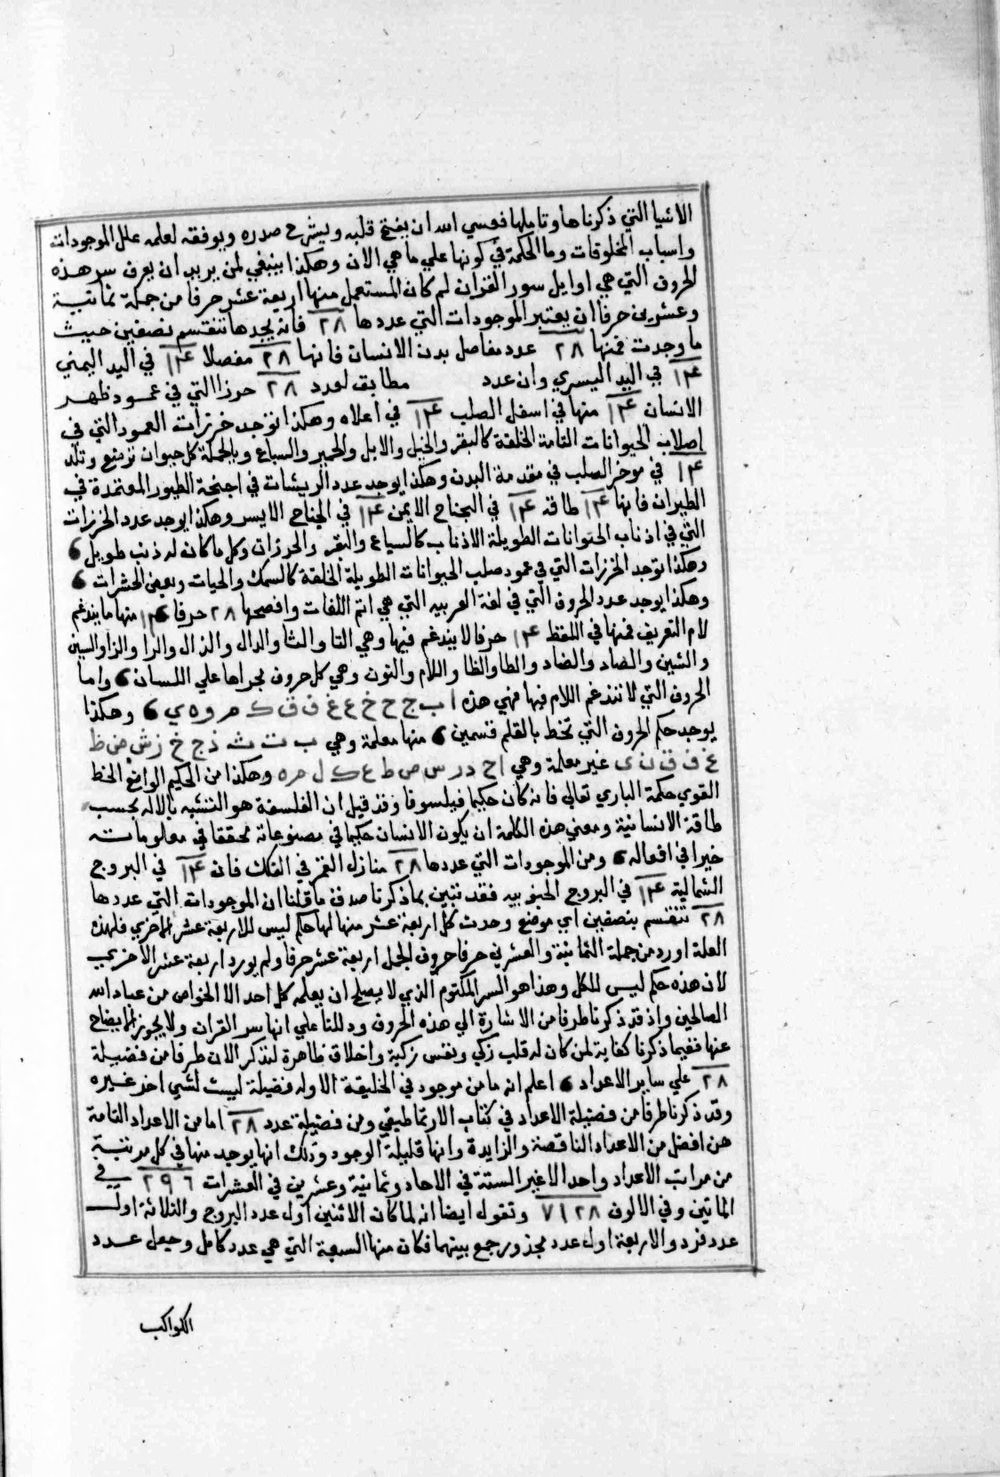 الاشيا التي ذكرناها وتاملها فعسي الله ان يفتح قلبه ويشرح صدره ويوفقه لعلمه علل الموجودات
واسباب المخلوقات وما الحكمة في كونها علي ما هي الان وهكذا ينبغي لمن يريد ان يعرف سر هذه
الحروف التي هي اوايل سور القران لم كان المستعمل منها اربعة عشر حرفا من جملة ثمانية
وعشرين حرفا ان يعتبر الموجودات التي عددها ٢٨ فانه يجدها تنقسم نصفين حيث
ما وجدت فمنها ٢٨ عدد مفاصل بدن الانسان فانها ٢٨ مفصلا ١۴ في اليد اليمني
١۴ في اليد اليسري وان عدد مطابق لعدد ٢٨ حرزا التي في عمود ظهر
الانسان ١۴ منها في اسفل الصلب ١۴ في اعلاه وهكذا توجد خرزات العمود التي في
اصلاب الحيوانات التامة الخلقة كالبقر والخيل والابل والحمير والسباع وبالجملة كل حيوان ترضع وتلد
١۴ في موخر الصلب في مقدمة البدن وهكذا يوجد عدد الريشات في اجنحة الطيور المعتمدة في
الطيران فانها ١۴ طاقة ١۴ في الجناح الايمن ١۴ في الجناح الايسر وهكذا يوجد عدد الخرزات
التي في اذناب الحيوانات الطويلة الاذناب كالسباع والبقر والخرزات وكل ما كان له ذنب طويل ٥
وهكذا توجد الخرزات التي في عمود صلب الحيوانات الطويلة الخلقة كالسمك والحيات وبعض الحشرات ٥
وهكذا يوجد عدد الحروف التي في لغة العربيه التي هي اتم اللغات وافصحها ٢٨ حرفا ١۴ منها ما يندغم
لام التعريف فمنها في اللفظ ١۴ حرفا لا يندغم فيها وهي التا والثا والدال والذال والرا والزا والسين
والشين والصاد والضاد والطا والظا واللام والنون وهي كل حروف مجراها علي اللسان ٥ واما
الحروف التي لا تندغم اللام فيها فهي هذه ا ب ج ح خ ع غ ف ق ك م و ه ي ٥ وهكذا
يوجد حكم الحروف التي تخط بالقلم قسمين ٥ منها معلمة وهي ب ت ث ذ ج خ ز ش ض ظ
غ ف ق ن ى غير معلمة وهي ا ح د ر س ص ط ع ك ل م ه وهكذا من الحكيم الواضع الخط
القوي حكمة الباري تعالي فانه كان حكيما فيلسوفا وقد قيل ان الفلسفة هو التشبه بالاله بحسب
طاقة الانسانية ومعني هذه الكلمة ان يكون الانسان حكيما في مصنوعاته محققا في معلوماته
خيرا في افعاله ٥ ومن الموجودات التي عددها ٢٨ منازل القمر في الفلك فان ١۴ في البروج
الشمالية ١۴ في البروج الجنوبيه فقد تبين بما ذكرنا صدق ما قلنا ان الموجودات التي عددها
٢٨ تنقسم بنصفين اي موضع وجدت كل اربعة عشر منها لها حكم ليس للاربعة عشر الاخري فلهذه
العلة اورد من جملة الثمانية والعشرين حرفا حروف الجمل اربعة عشر حرفا ولم يورد اربعة عشر الاخري
لان هذه حكم ليس للكل وهذا هو السر المكتوم الذي لا يصلح ان يعلمه كل احد الا الخواص من عباد الله
الصالحين واذ قد ذكرنا طرفا من الاشارة الي هذه الحروف ودللنا علي انها سر القران ولا يجوز الايضاح
عنها ففيما ذكرنا كفاية لمن كان له قلب زكي ونفس زكية واخلاق طاهرة لنذكر الان طرفا من فضيلة
٢٨ علي ساير الاعداد ٥ اعلم انه ما من موجود في الخليقة الا وله فضيلة ليست لشي اخر غيره
وقد ذكرنا طرفا من فضيلة الاعداد في كتاب الارتماطيقي ومن فضيلة عدد ٢٨ اما من الاعداد التامة
هن افضل من الاعداد الناقصة والزايدة وانها قليلة الوجود وذلك انها يوجد منها في كل مرتبة
من مراتب الاعداد واحد الاغير الستة في الاحاد وثمانية وعشرين في العشرات ٢٩٦ في
الماتين وفي الالوف ٧١٢٨ ونقول ايضا انه لما كان الاثنين اول عدد الزوج والثلاثة اول
عدد فرد والاربعة اول عدد مجذور جمع بينهما فكان منها السبعة التي هي عدد كامل وجعل عدد
الكواكب